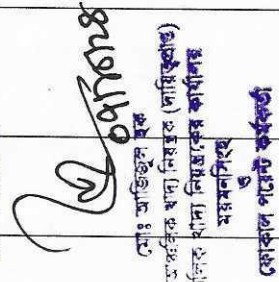 ০৭/০৮/২৪
মোঃ আজিজুল হক
আঞ্চলিক খাদ্য নিয়ন্ত্রক (দায়িত্বপ্রাপ্ত)
আঞ্চলিক খাদ্য নিয়ন্ত্রকের কার্যালয়
ময়মনসিংহ
ও
ফোকাল পয়েন্ট কর্মকর্তা